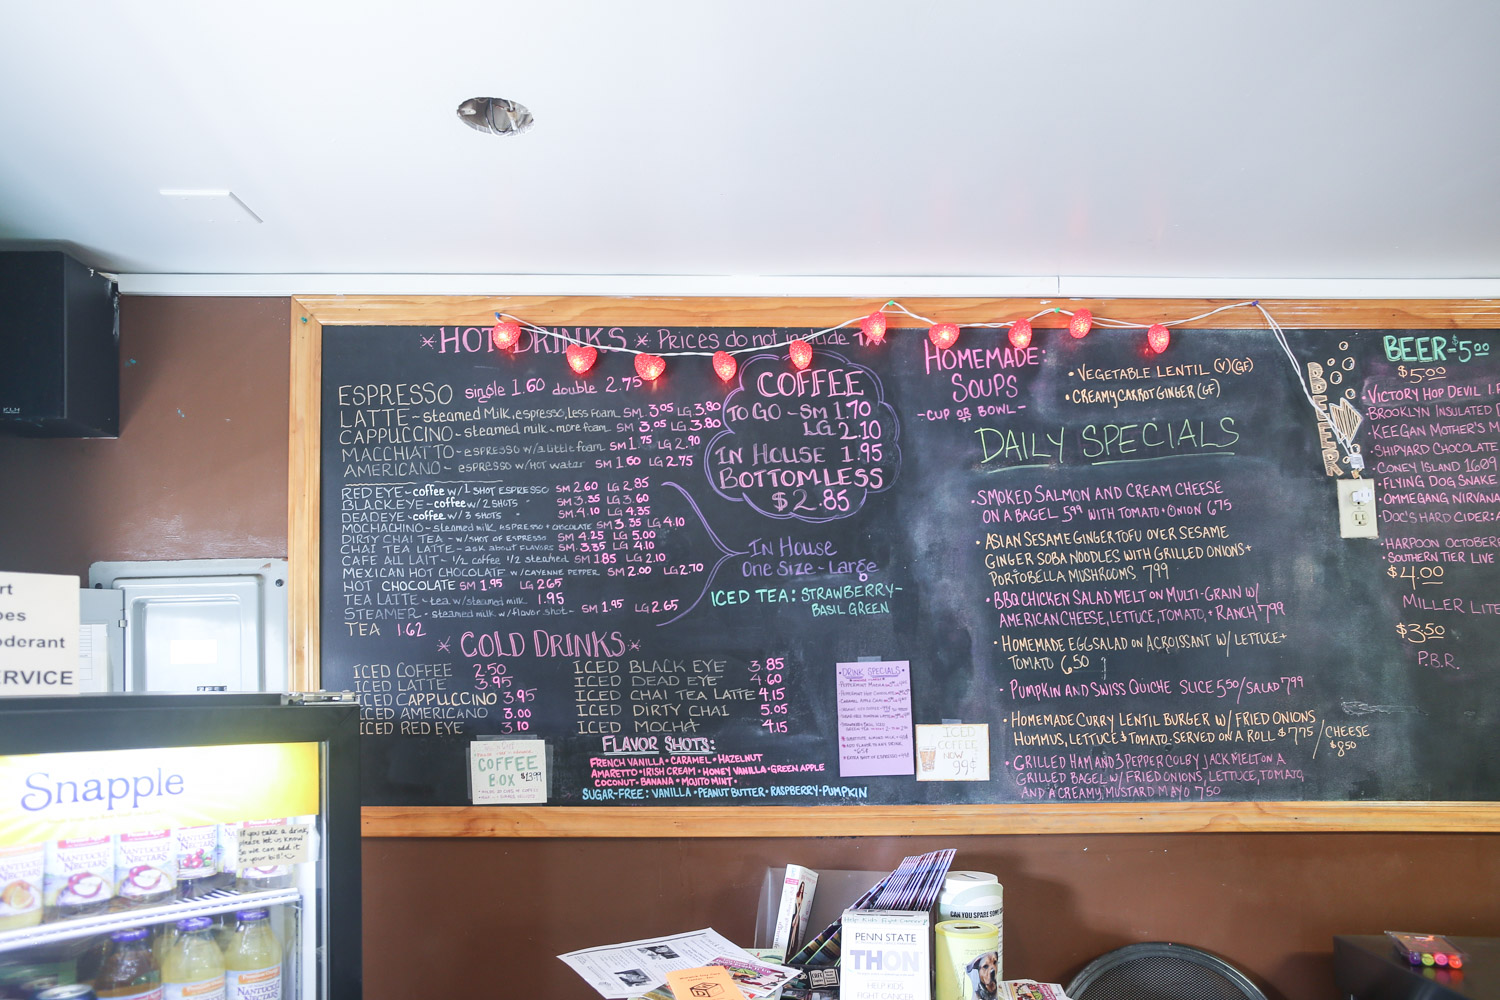 *HOT DRINKS* Prices do not include
ESPRESSO single 1.60 double 2.75
LATTE~steamed Milk, espresso, less foam SM 3.05 LG 3.80
CAPPUCCINO~steamed milk~more foam SM 3.05 LG 3.80
MACCHIATTO~espresso w/a little foam SM 1.75 LG 2.90
AMERICANO~espresso w/HOT water SM 1.60 LG 2.75
RED EYE~coffee w/1 SHOT ESPRESSO SM 2.60 LG 2.85
BLACK EYE~coffee w/2 SHOTS SM 3.35 LG 3.60
DEAD EYE~coffee w/3 SHOTS SM 4.10 LG 4.35
MOCHACHINO~steamed milk espresso + chocolate SM 3.35 LG 4.10
DIRTY CHAI TEA~w/SHOT OF ESPRESSO SM 4.25 LG 5.00
CHAI TEA LATTE~ask about FLAVORS SM 3.35 LG 4.10
CAFE AU LAIT~1/2 coffee 1/2 steamed SM 1.85 LG 2.10
MEXICAN HOT CHOCOLATE w/CAYENNE PEPPER SM 2.00 LG 2.70
HOT CHOCOLATE SM 1.95 LG 2.65
TEA LATTE~tea w/steamed milk 1.95
STEAMER~steamed milk w/flavor shot~ SM 1.95 LG 2.65
TEA 1.62
COFFEE
TO GO~SM 1.70
LG 2.10
IN HOUSE 1.95
BOTTOMLESS
$2.85
In House
One Size~Large
ICED TEA: STRAWBERRY~
BASIL GREEN
*COLD DRINKS*
ICED COFFEE 2.50
ICED LATTE 3.95
ICED CAPPUCCINO 3.95
ICED AMERICANO 3.00
ICED RED EYE 3.10
ICED BLACK EYE 3.85
ICED DEAD EYE 4.60
ICED CHAI TEA LATTE 4.15
ICED DIRTY CHAI 5.05
ICED MOCHA 4.15
FLAVOR SHOTS:
FRENCH VANILLA • CARAMEL • HAZELNUT
AMARETTO • IRISH CREAM • HONEY VANILLA • GREEN APPLE
COCONUT • BANANA • MOJITO MINT •
SUGAR-FREE: VANILLA • PEANUT BUTTER • RASPBERRY • PUMPKIN
COFFEE
BOX $13.99
DRINK SPECIALS
ICED
COFFEE
NOW
99¢
HOMEMADE:
SOUPS
~CUP OR BOWL~
• VEGETABLE LENTIL (V)(GF)
• CREAMY CARROT GINGER (GF)
DAILY SPECIALS
• SMOKED SALMON AND CREAM CHEESE
ON A BAGEL 5.99 WITH TOMATO + ONION 6.75
• ASIAN SESAME GINGER TOFU OVER SESAME
GINGER SOBA NOODLES WITH GRILLED ONIONS +
PORTOBELLA MUSHROOMS 7.99
• BBQ CHICKEN SALAD MELT ON MULTI-GRAIN W/
AMERICAN CHEESE, LETTUCE, TOMATO, + RANCH 7.99
• HOMEMADE EGG SALAD ON A CROISSANT W/ LETTUCE +
TOMATO 6.50
• PUMPKIN AND SWISS QUICHE SLICE 5.50/SALAD 7.99
• HOMEMADE CURRY LENTIL BURGER W/ FRIED ONIONS
HUMMUS, LETTUCE & TOMATO. SERVED ON A ROLL $7.75 / CHEESE
$8.50
• GRILLED HAM AND 3 PEPPER COLBY JACK MELT ON A
GRILLED BAGEL W/ FRIED ONIONS, LETTUCE, TOMATO,
AND A CREAMY, MUSTARD MAYO 7.50
BEER~$5.00
$5.00
VICTORY HOP DEVIL
BROOKLYN INSULATED
KEEGAN MOTHER'S
SHIPYARD CHOCOLATE
CONEY ISLAND 1609
FLYING DOG SNAKE
OMMEGANG NIRVANA
DOC'S HARD CIDER:
HARPOON
SOUTHERN TIER LIVE
$4.00
MILLER LITE
$3.50
P.B.R.
KLH
rt
oes
oderant
ERVICE
Snapple
If you take a drink,
please let us know
so we can add it
to your bill!
NANTUCKET
NECTARS
NANTUCKET
NECTARS
Help Kids Fight Cancer
PENN STATE
THON
HELP KIDS
FIGHT CANCER
CAN YOU SPARE SOME